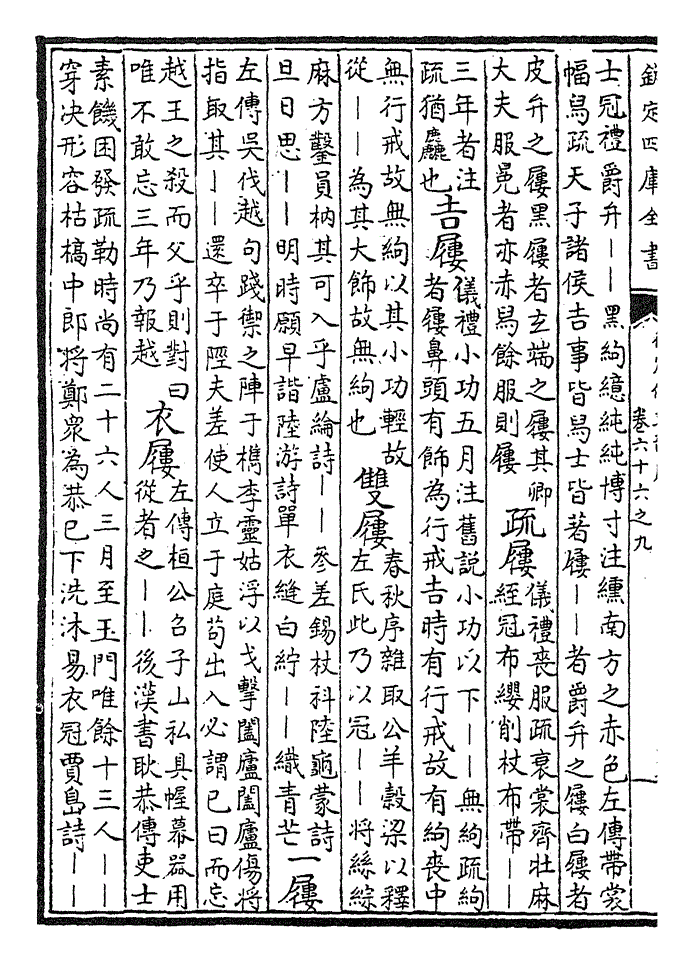 欽定四庫全書
卷六十六之九
士冠禮爵弁——黑絇繶純純博寸注纁南方之赤色左傳帶裳
幅舄疏天子諸侯吉事皆舄士皆著屨——者爵弁之屨白屨者
皮弁之屨黑屨者玄端之屨其卿
大夫服冕者亦赤舄餘服則屨
疏屨
儀禮喪服疏衰裳齊牡麻
絰冠布纓削杖布帶——
三年者注
疏猶麤也
吉屨
儀禮小功五月注舊説小功以下——無絇疏絇
者屨鼻頭有飾為行戒吉時有行戒故有絇喪中
無行戒故無絇以其小功輕故
從——為其大飾故無絇也
雙屨
春秋序雜取公羊穀梁以釋
左氏此乃以冠——將絲綜
麻方鑿員枘其可入乎盧綸詩——參差錫杖科陸龜蒙詩
旦日思——明時願早諧陸游詩單衣縫白紵——織青芒
一屨
左傳吳伐越句踐禦之陣于檇李靈姑浮以戈擊闔廬闔廬傷將
指取其——還卒于陘夫差使人立于庭苟出入必謂已曰而忘
越王之殺而父乎則對曰
唯不敢忘三年乃報越
衣屨
左傳桓公召子山私具幄幕器用
從者之——後漢書耿恭傳吏士
素饑困發疏勒時尚有二十六人三月至玉門唯餘十三人——
穿決形容枯槁中郎將鄭衆為恭已下洗沐易衣冠賈島詩——